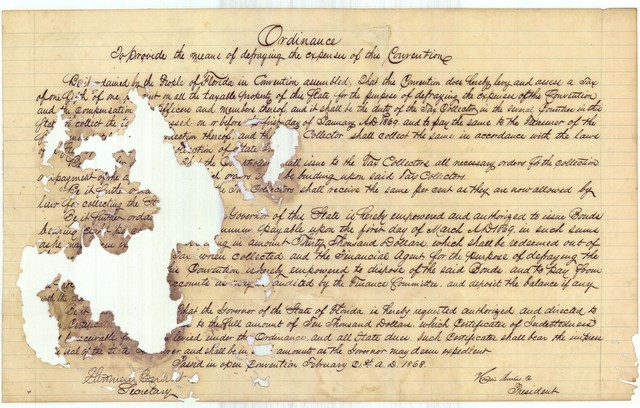 Ordinance
To provide the means of defraying the expense of this Convention
Be it ained by the People of Florida in Convention assembled, That the Convention does hereby levy and assess a Tax
of one of one on all the taxable property of this State for the purpose of defraying the expenses of the Convention
and compensation officers and members thereof, and it shall be the duty of the Tax Collectors in the several Counties in this
State to collect the essed on or before first day of January A.D. 1869, and to pay the same to the Treasurer of the
nection thereof, and the Collector shall collect the same in accordance with the laws
ollection of State
the shall issue to the Tax Collectors all necessary orders for the collection
or payment of the orders be binding upon said Tax Collectors.
Be it further the Tax Collectors shall receive the same per cent as they are now allowed by
law for collecting the
Be it further ordai Governor of this State is hereby empowered and authorized to issue Bonds
bearing per annum payable upon the first day of March A.D. 1869, in such sums
as he may in amount Thirty Thousand Dollars, which shall be redeemed out of
Tax when collected and the Financial Agent for the purpose of defraying the
Convention is hereby empowered to dispose of the said Bonds and to pay from
accounts as may audited by the Finance Committee, and deposit the balance if any
with the
Be it That the Governor of the State of Florida is hereby requested authorized and directed to
Certificates to the full amount of Ten Thousand Dollars, which Certificates of Indebtedness
be receivable for levied under this Ordinance, and all State dues. Such Certificates shall bear the impress
seal of the State and shall be in amount as the Governor may deem expedient
Passed in open Convention February 21st A.D. 1868.
Secretary
President